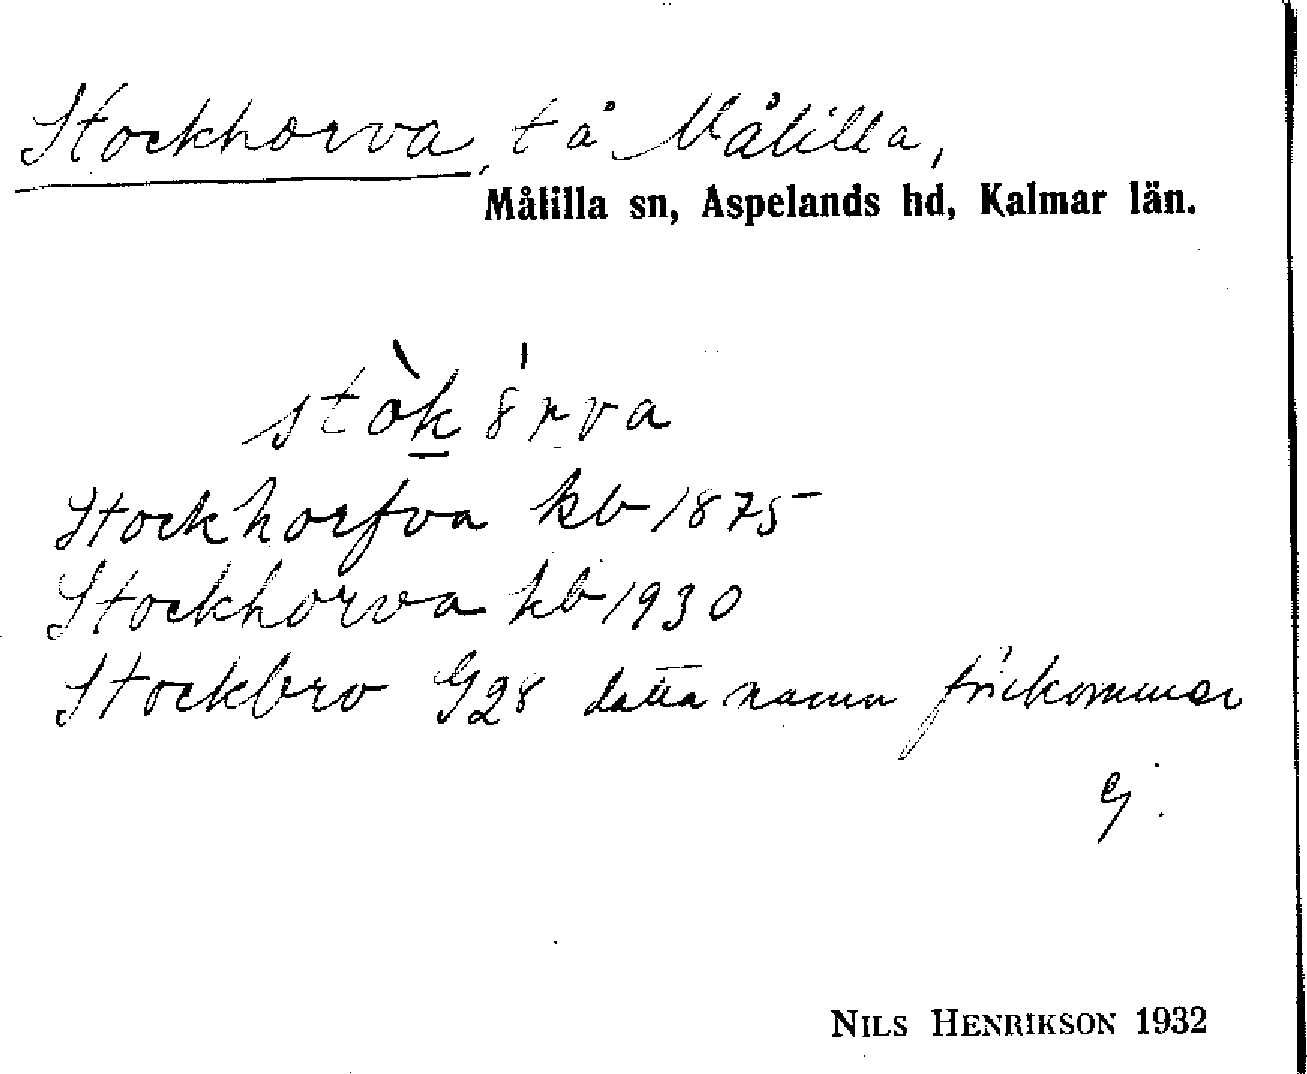 Stockhorva, t å Målilla,
Målilla sn, Aspelands hd, Kalmar län.
stòk ȣ́rva
Stockhorfva kb 1875
Stockhorva kb 1930
Stockbro G28 detta namn förekommer
ej.
NILS HENRIKSON 1932